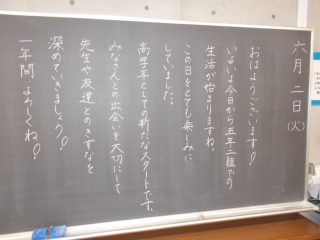 六月二日(火)
おはようございます!
いよいよ今日から五年二組での
生活が始まりますね。
この日をとても楽しみに
していました。
高学年としての新たなスタートです。
みなさんとの出会いを大切にして
先生や友達とのきずなを
深めていきましょう!
一年間よろしくね!